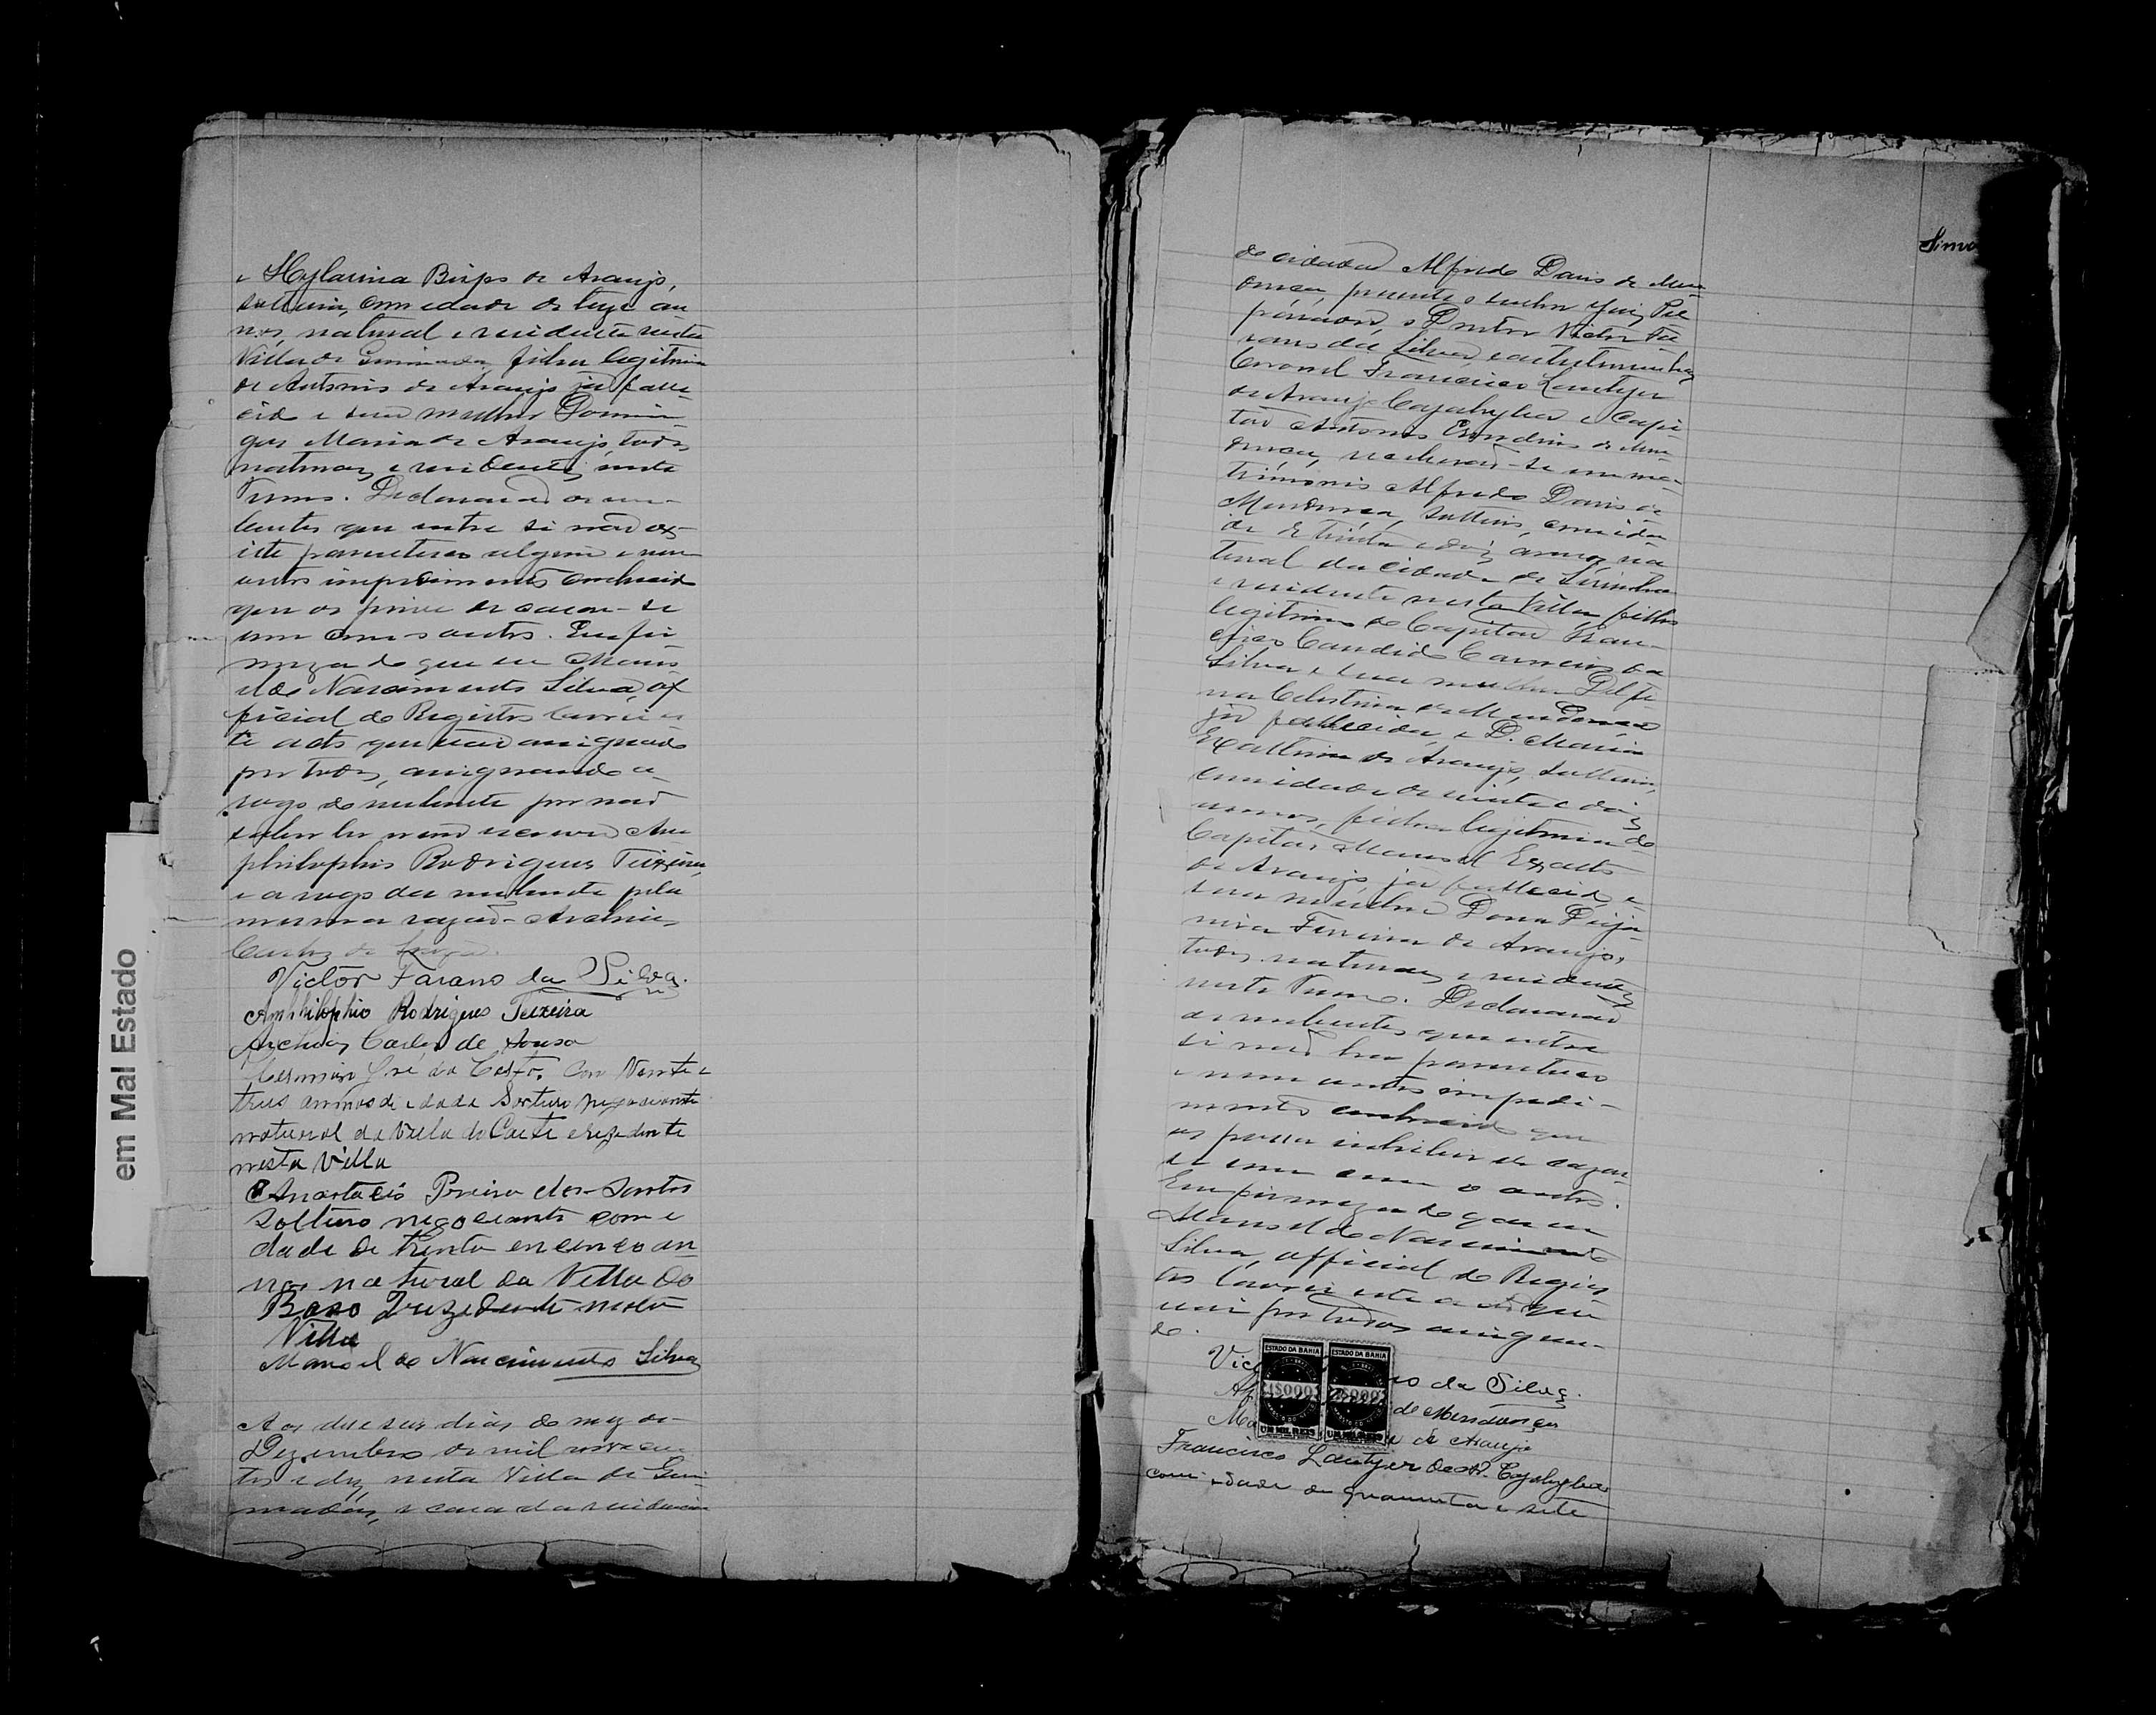 e Hylarina Bispo de Araujo,
solteira, com edade de treze an
nos, natural e residente nesta
Villa de filha legitima
de Antonio de Araujo já falle-
cido e sua mulher Domin
gas Maria de Araujo, todos
naturaes e residentes neste
Termo. Declararaõ os nu-
bentes que entre si naõ ex-
iste parentesco algum e nem
outro impedimento conhecido
que os prive de casar-se
um com o outro. Em fir
meza do que eu Mano
el do Nascimento Silva, of
ficial do Registro lavrei es
te acto que vai assignado
por todos, assignando a-
rogo do nubente por naõ
saber ler nem escrever Am
philophio Rodrigues Teixeira,
e a rogo da nubente pela
mesma razaõ Archias
Carlos de Souza.
Victor Farano da Silva.
Amphilophio Rodrigues Teixeira
Archias Carlos de Sousa
José da Costa, Com Vente e
tres annos de edade Sorteiro negociante
natural da Villa do Conde e rezidente
nesta Villa
Anastacio Pereira dos Santos
Solteiro negociante com e
dade de trenta en cinco an
nos natural da Villa do
rezedente nesta
Villa
Manoel do Nascimento Silva
Aos dezeseis dias do mez de
Dezembro de mil novecen
tos e dez, nesta Villa de
e casa da residencia
do cidadaõ Alfredo Davis de Men
donça, presente o senhor Juiz Pre
parador, o Doutor Victor Fa
rano da Silva, e as testemunhas
Coronel Francisco Lantyer
de Araujo Cajahyba e Capi
taõ Antonio de Men
donça, receberaõ-se em ma-
trimonio Alfredo Davis de
Mendonça, solteiro, com ida
de de trinta e dois annos, na
tural da cidade de Serinha
e residente nesta Villa, filho
legitimo do Capitaõ Fran-
cisco Candido Carneiro da
Silva e sua mulher Delfi
na Celestina de Mendonça
já fallecida, e D. Maria
de Araujo, solteira,
com idade de vinte e dois
annos, filha legitima do
Capitaõ Manoel
de Araujo já fallecido, e
sua mulher Dona Deja
nira Ferreira de Araujo,
todos naturaes e residentes
neste Termo. Declararaõ
os nubentes que entre
si naõ ha parentesco
e nem outro impedi-
mento conhecido que
os possa inhibir de cazar-
se um com o outro.
Em firmeza do que eu
Manoel do Nascimento
Silva, official do Regis
tro lavrei este acto que
vai por todos assigna-
do.
ESTADO DA BAHIA ESTADO DA BAHIA
1$000 1$000
UM MIL REIS UM MIL REIS
Vic no da Silva.
Al de Mendonça
Ma de Araujo
Francisco Lantyer de A. Cajahyba
com idade de quarenta e sete
em Mal Estado